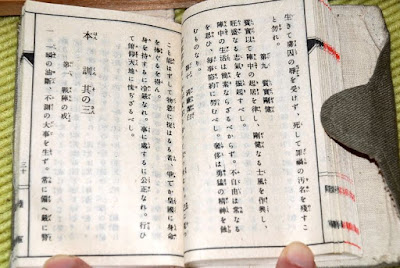 生きて虜囚の辱を受けず、死して罪禍の汚名を殘すこ
と勿れ。
第九 質實剛健
質實以て陣中の起居を律し、剛健なる士風を作興し、
旺盛なる志氣を振起すべし。
陣中の生活は簡素ならざるべからず。不自由は常なる
を思ひ、毎事節約に努むべし。奢侈は勇猛の精神を蝕
むものなり。
こと能はずして物慾に捉はるる者、爭でか皇國に身命
を捧ぐるを得ん。
身を持するに冷嚴なれ。事に處するに公正なれ。行ひ
て俯仰天地に愧ぢざるべし。
本訓 其の三
第一 戰陣の戒
一 一瞬の油斷、不測の大事を生ず。常に備へ嚴に警
三十